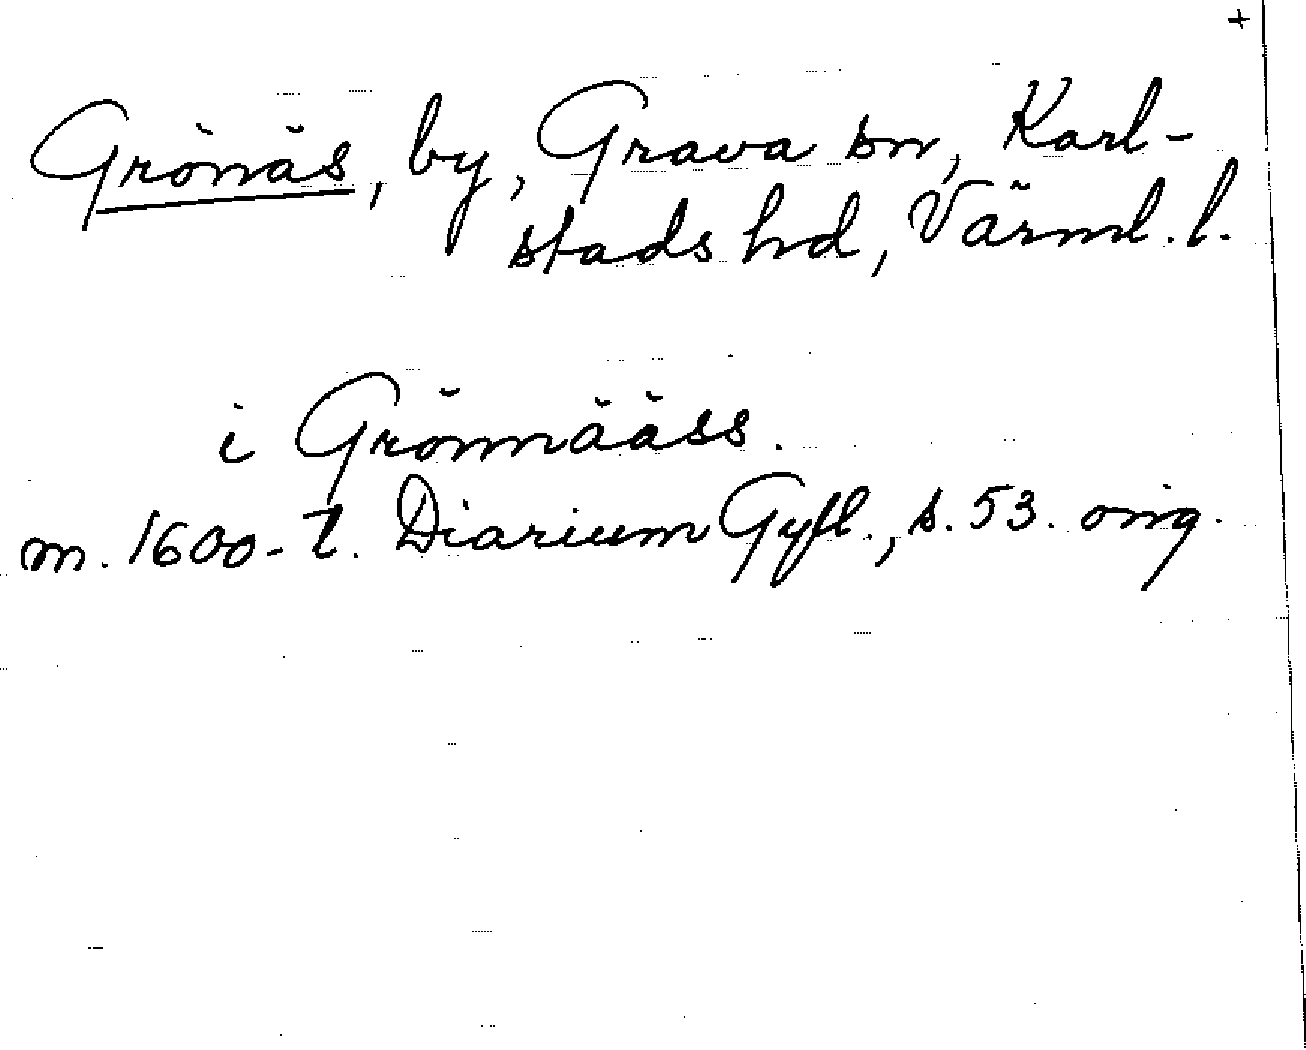 +
Grönäs, by, Grava sn, Karl-
stads hd, Värml. l.
i Grönnääss.
m. 1600-t. Diarium Gyll., s. 53. orig.